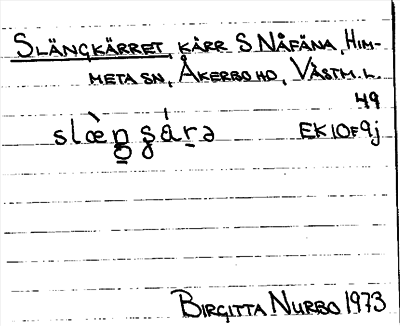 SLÄNGKÄRRET, KÄRR S NÅFÄNA, HIM-
META SN, ÅKERBO HD, VÄSTM. L.
49
slæ̀ŋ ʂárə EK 10F9j
BIRGITTA NURBO 1973